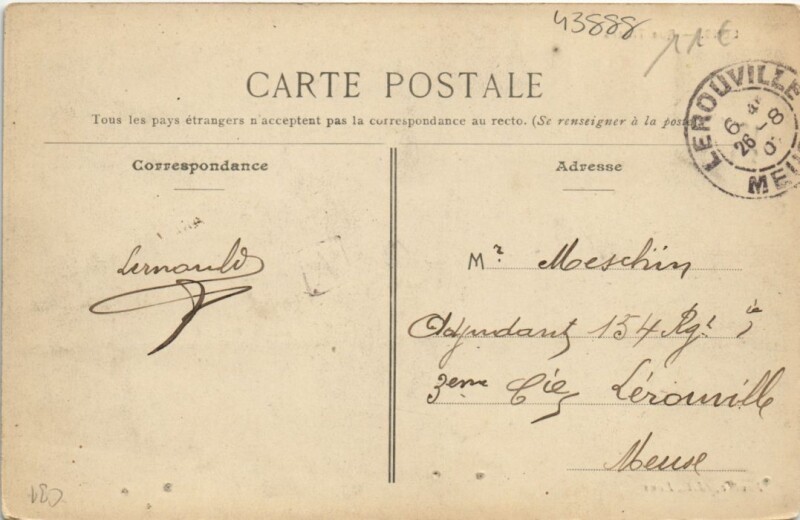 43888
11€
CARTE POSTALE
Tous les pays étrangers n'acceptent pas la correspondance au recto. (Se renseigner à la poste
LEROUVILLE
6
26 -8
MEU
Correspondance
Adresse
Lernould
Mr. Meschin
Adjudant 154 Rgt
3eme Cie Lérouville
Meuse